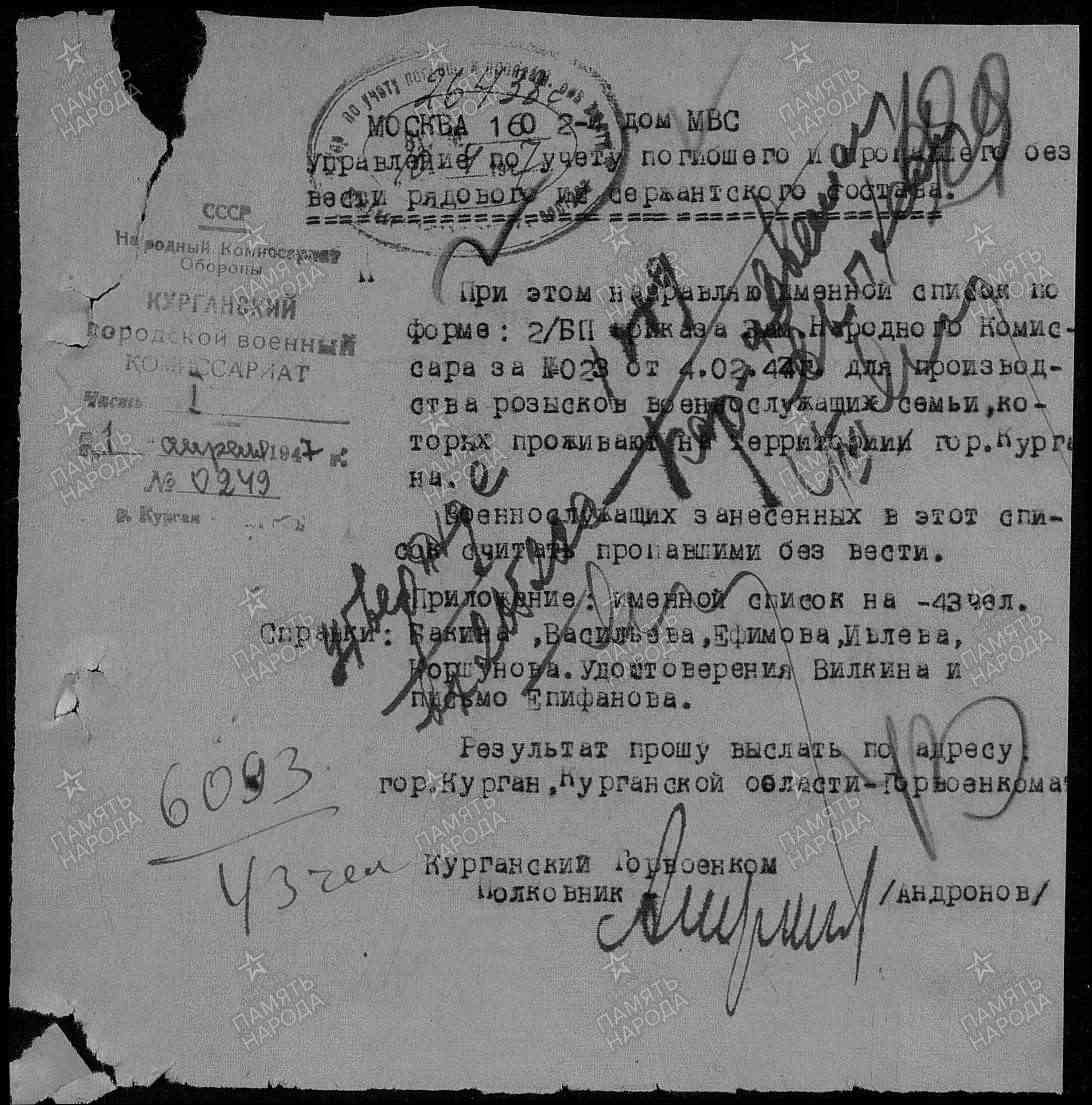 26438с
МОСКВА 160 2-й дом МВС
управление по учету погибшего и пропавшего без
вести рядового и сержантского состава.
СССР
Народный Комиссариат
Обороны
КУРГАНСКИЙ
городской военный
КОМИССАРИАТ
Часть 1
"1" апреля 1947 г.
№ 0249
г. Курган
При этом направляю именной список по
форме: 2/БП приказа Зам.Народного Комис-
сара за №023 от 4.02.44г. для производ-
ства розысков военнослужащих семьи,ко-
торых проживают на территории гор.Курга
на.
Военнослужащих занесенных в этот спи-
сок считать пропавшими без вести.
Приложение: именной список на -43чел.
Справки: Бакина ,Васильева,Ефимова,Ивлева,
Коршунова.Удостоверения Вилкина и
письмо Епифанова.
Результат прошу выслать по адресу:
гор.Курган,Курганской области-Горвоенкомат
6093
43 чел
Курганский Горвоенком
Полковник /Андронов/
ПАМЯТЬ
НАРОДА